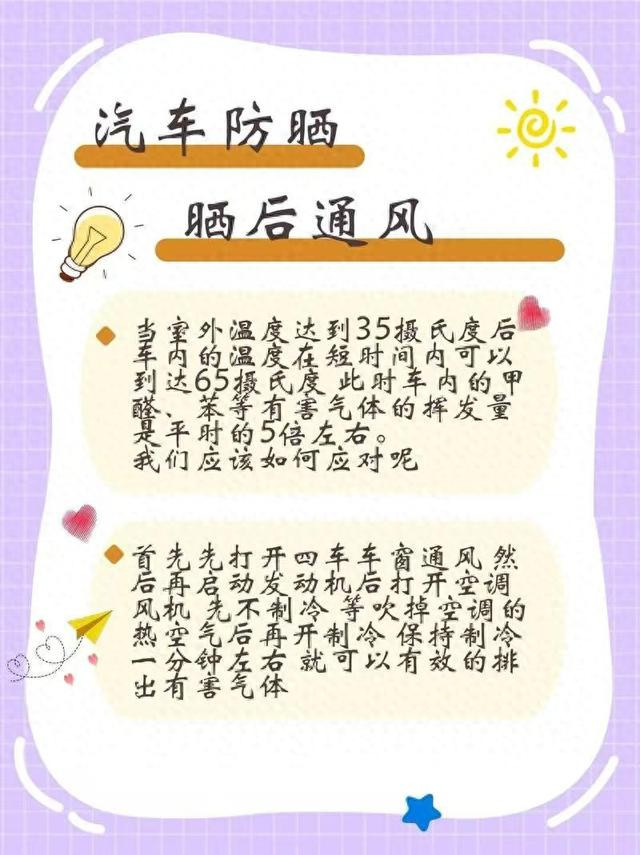 汽车防晒
晒后通风
当室外温度达到35摄氏度后
车内的温度在短时间内可以
到达65摄氏度 此时车内的甲
醛、苯等有害气体的挥发量
是平时的5倍左右。
我们应该如何应对呢
首先先打开四车车窗通风 然
后再启动发动机后打开空调
风机 先不制冷 等吹掉空调的
热空气后再开制冷 保持制冷
一分钟左右 就可以有效的排
出有害气体